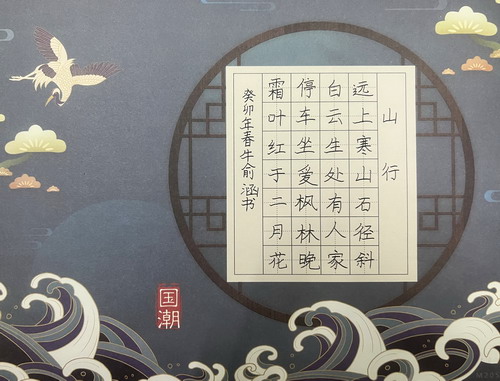 山行
远上寒山石径斜
白云生处有人家
停车坐爱枫林晚
霜叶红于二月花
癸卯年春牛俞涵书
国潮